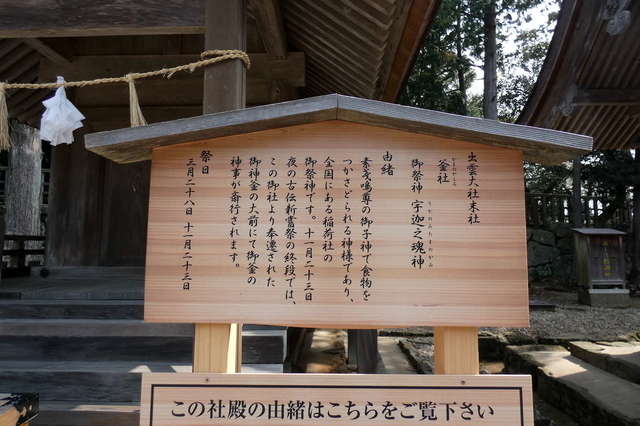 出雲大社末社
釜社
かまのやしろ
御祭神 宇迦之魂神
うかのみたまのかみ
由緒
素戔嗚尊の御子神で食物を
つかさどられる神様であり、
全国にある稲荷社の
御祭神です。十一月二十三日
夜の古伝新嘗祭の終段では、
この御社より奉遷された
御神釜の大前にて御釜の
神事が斎行されます。
祭日
三月二十八日 十一月二十三日
この社殿の由緒はこちらをご覧下さい